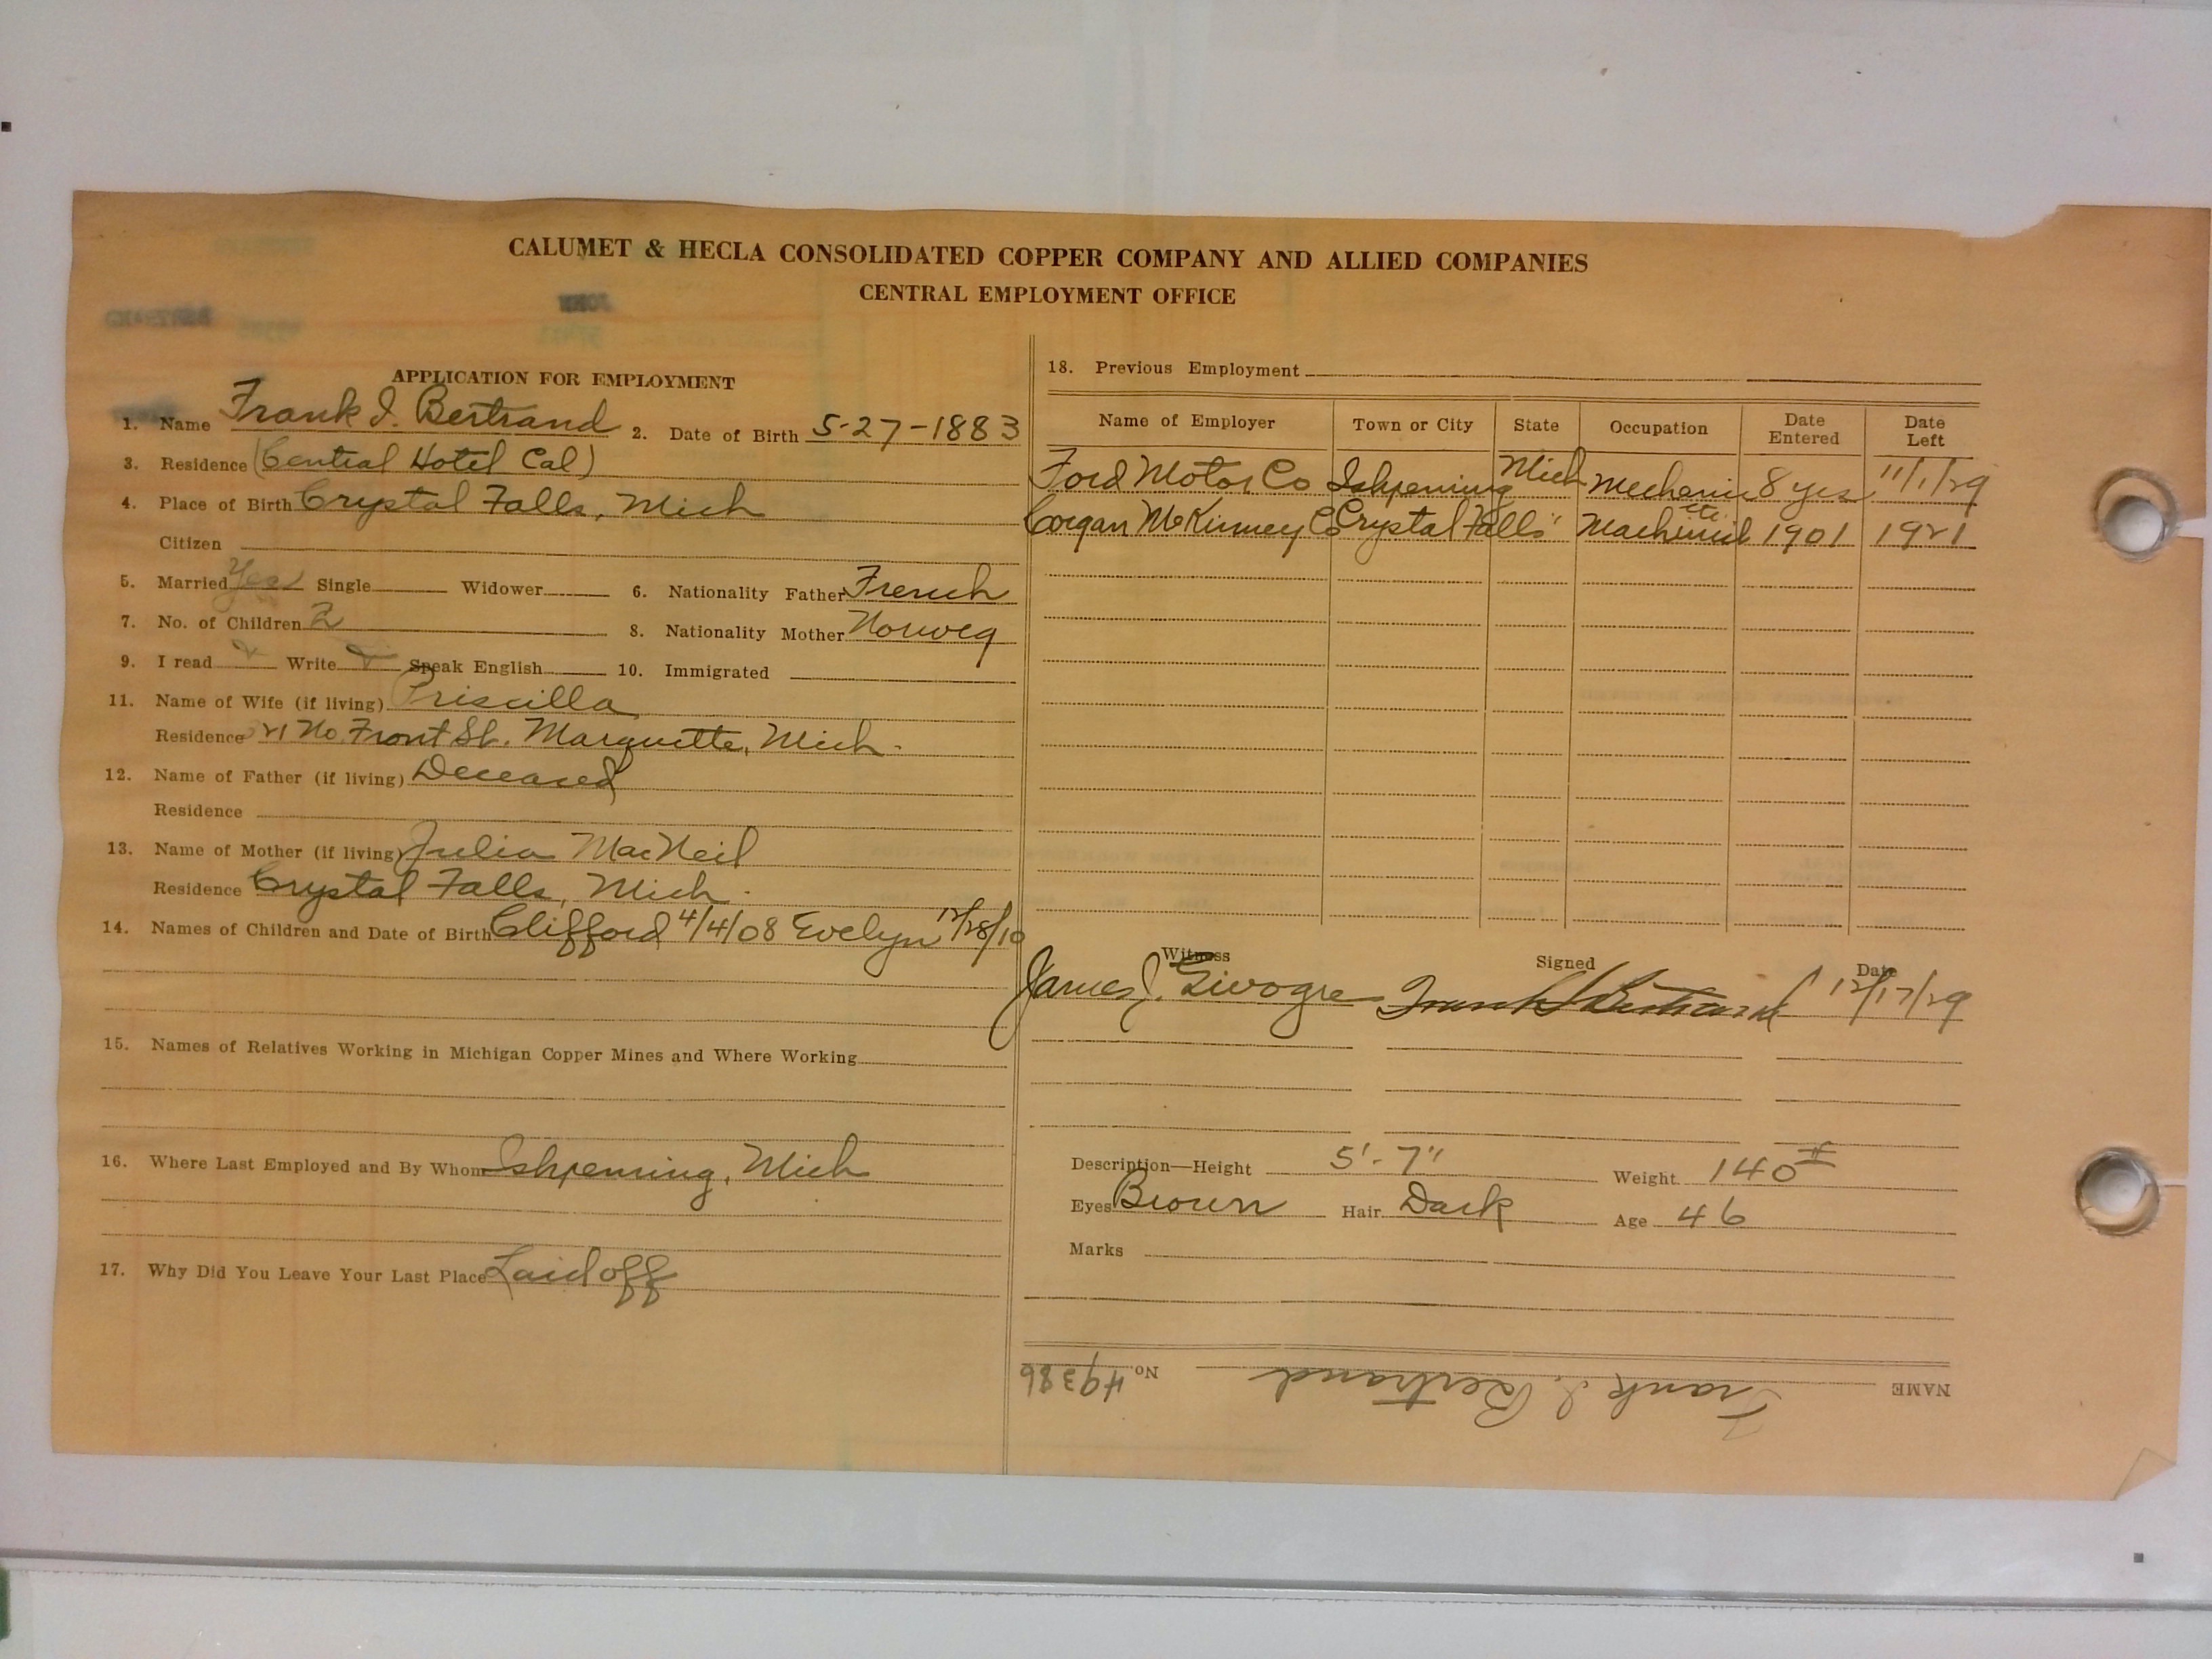 CALUMET & HECLA CONSOLIDATED COPPER COMPANY AND ALLIED COMPANIES
CENTRAL EMPLOYMENT OFFICE
APPLICATION FOR EMPLOYMENT
1. Name Frank J. Bertrand 2. Date of Birth 5-27-1883
3. Residence (Central Hotel Cal)
4. Place of Birth Crystal Falls, Mich
Citizen
5. Married Yes Single Widower 6. Nationality Father French
7. No. of Children 2 8. Nationality Mother Norweg
9. I read Write Speak English 10. Immigrated
11. Name of Wife (if living) Priscilla
Residence No. Front St. Marquette, Mich.
12. Name of Father (if living) Deceased
Residence
13. Name of Mother (if living) Julia MacNeil
Residence Crystal Falls, Mich.
14. Names of Children and Date of Birth Clifford 4/4/08 Evelyn 12/28/10
15. Names of Relatives Working in Michigan Copper Mines and Where Working
16. Where Last Employed and By Whom Ishpeming, Mich
17. Why Did You Leave Your Last Place Laid off
18. Previous Employment
Name of Employer Town or City State Occupation Date Entered Date Left
Ford Motor Co Ishpeming Mich Mechanic 8 yrs 11/1/29
Corgan McKinney Co Crystal Falls " Machinist 1901 1921
Witness Signed Date
James J. Frank J Bertrand 12/17/29
Description—Height 5'-7" Weight 140#
Eyes Brown Hair Dark Age 46
Marks
NAME Frank J. Bertrand No. 49386